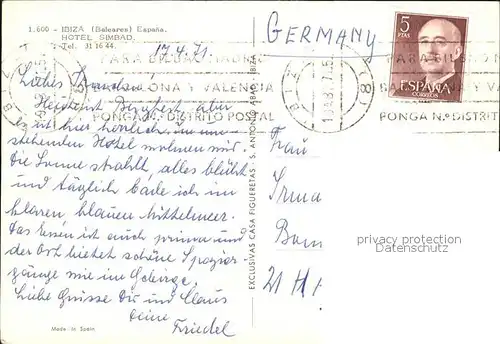 1.600 - IBIZA (Baleares) España.
HOTEL SIMBAD.
Tel. 31 16 44.
17.4.71.
GERMANY
5
PTAS
ESPAÑA
CORREOS
PARA BILBAO, MADRID,
BARCELONA Y VALENCIA
PONGA N.º DISTRITO POSTAL
PARA BILBAO
PONGA N.º DISTRIT
Liebes
aber
es ist hier herrlich. Im um-
stehenden Hotel wohnen wir.
Die Sonne strahlt, alles blüht
und täglich bade ich im
klaren blauen Mittelmeer.
Das Essen ist auch prima und
der Ort bietet schöne Spazier-
gänge wie im Gebirge.
Liebe Grüsse Dir und Claus
Deine
Friedel
Frau
Irma
21 H
EXCLUSIVAS CASA FIGUERETAS - S. ANTONIO ABAD - IBIZA
Made in Spain
privacy protection
Datenschutz